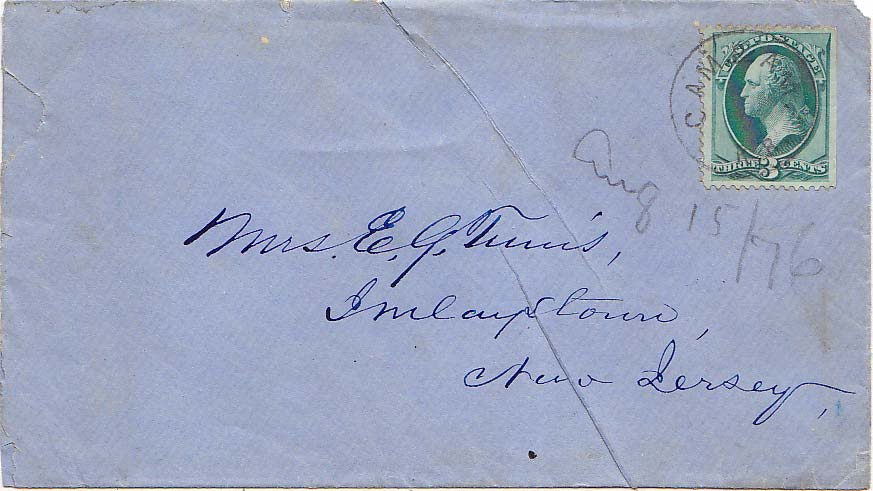 U.S. POSTAGE
THREE 3 CENTS
Aug 15/76
Mrs. E. G. Tunis,
Imlaystown,
New Jersey,